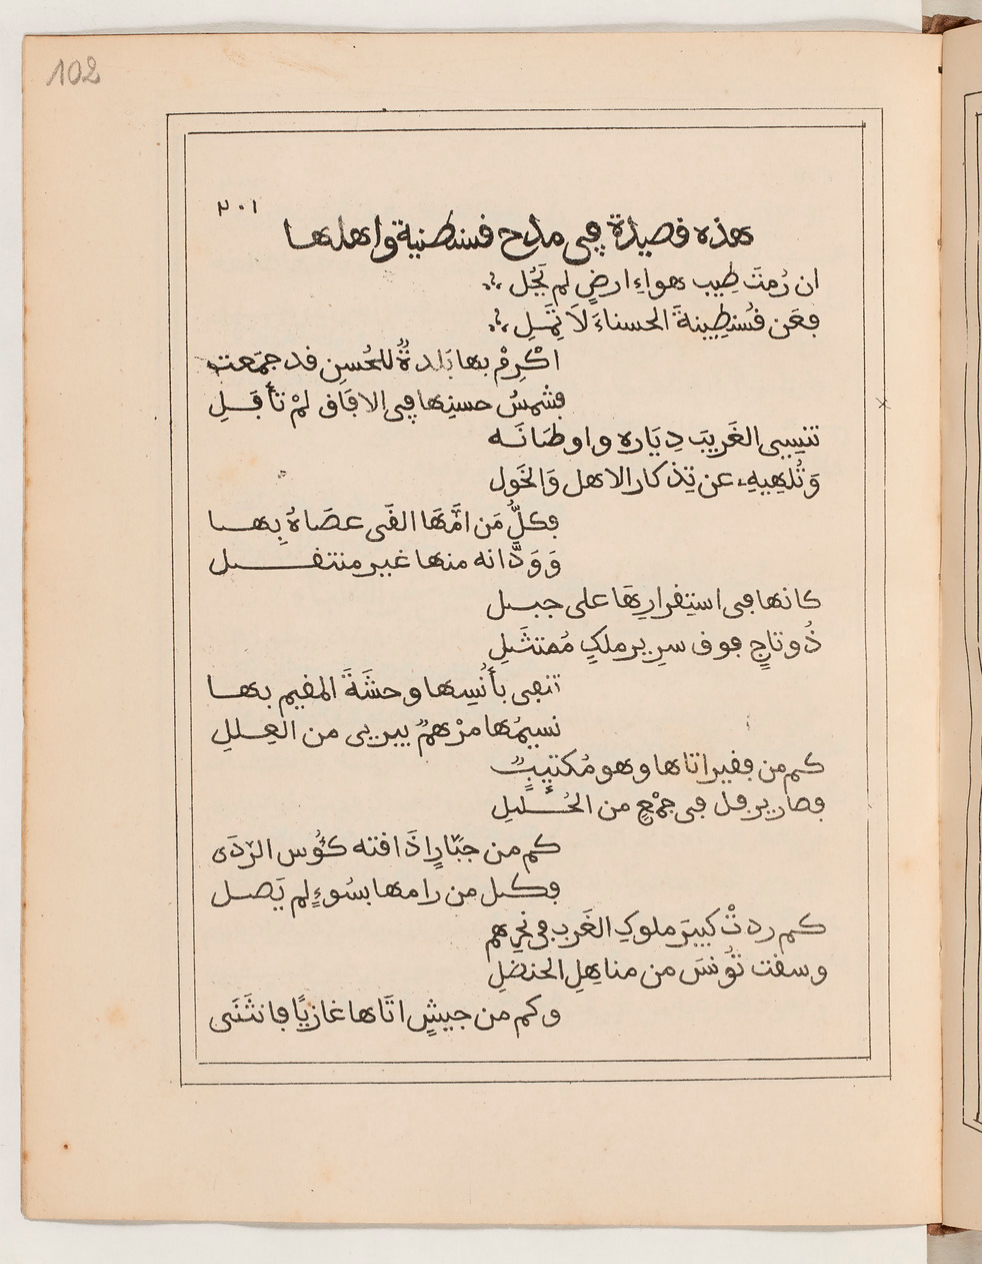 102
٢٠١
هذه قصيدة في مدح قسنطنية واهلها
ان رُمتَ طِيب هواءِ ارضٍ لم يَجُل
فعَن قُسْنطِينةَ الحسناءَ لاَ تَمِلِ
اكْرِمْ بها بَلدةٌ للحُسنِ قد جمَعت
فشمسُ حسنِها في الافَاق لمْ تأفَلِ
تنسِى الغَريبَ دِيَاره واوطَانَه
وَتُلهِيهِ عن تِذكار الاهل وَالخَول
فكلُّ مَن امَّهَا القَى عصَاهُ بِها
وَوَدَّ انه منها غير منتقل
كانها في استِقرارِهَا على جبل
ذُو تاجٍ فوق سرِير ملكٍ مُمتثَلِ
تنفى بأُنسِها وحشَةَ المقيم بها
نسيمُها مرْهمٌ يبرى من العِللِ
كم من فقير اتاها وهو مُكتيِبٌ
فصار يرفل في جمْعٍ من الحُلَلِ
كم من جبّارٍ اذَاقته كُؤُوس الرّدَى
فكل من رامها بسُوءٍ لم يَصل
كم ردتْ كيدَ ملوكِ الغَربِ في نحرِهم
وسقت تُونسَ من مناهِلِ الحنضلِ
وكم من جيشٍ اتَاها غازيًا فانثَنَى